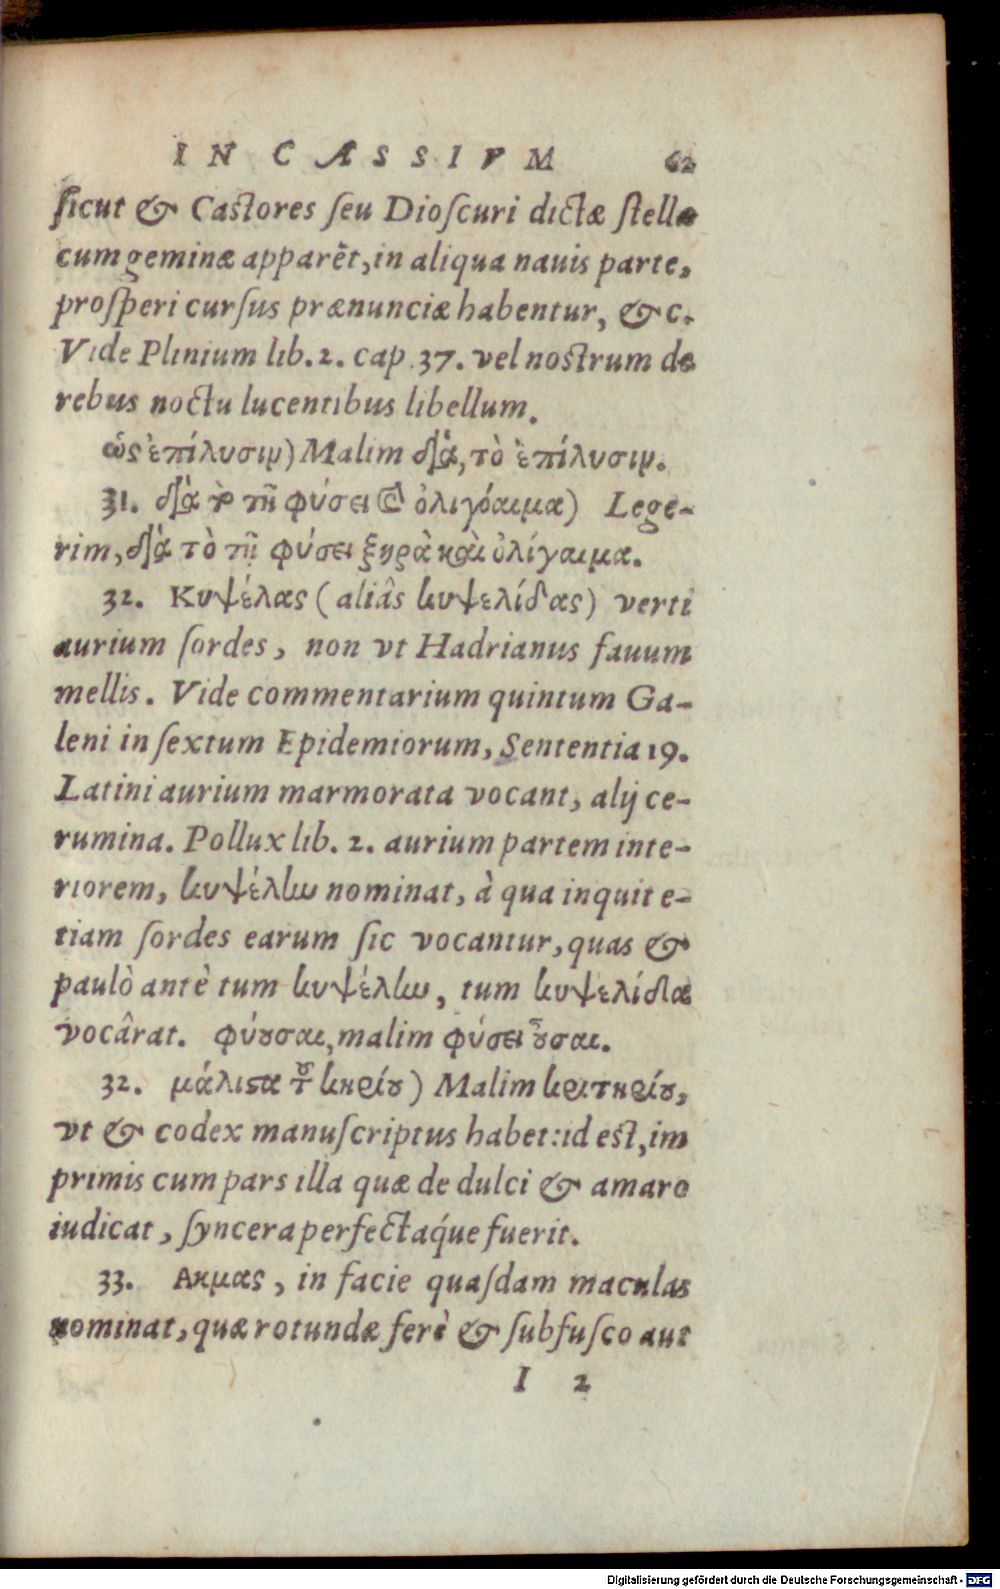 IN CASSIVM 62
ſicut & Castores ſeu Dioſcuri dictæ ſtellæ
cum geminæ apparēt, in aliqua nauis parte,
proſperi curſus prænunciæ habentur, & c.
Vide Plinium lib. 2. cap. 37. vel nostrum de
rebus noctu lucentibus libellum.
ὡς ἐπίλυσιν) Malim διὰ, τὸ ἐπίλυσιν.
31. διὰ τῇ φύσει ὀλιγόαιμα) Lege-
rim, διὰ τὸ τῇ φύσει ξηρὰ καὶ ὀλίγαιμα.
32. Κυψέλας (aliâs κυψελίδας) verti
aurium ſordes, non vt Hadrianus fauum
mellis. Vide commentarium quintum Ga-
leni in ſextum Epidemiorum, Sententia 19.
Latini aurium marmorata vocant, alij ce-
rumina. Pollux lib. 2. aurium partem inte-
riorem, κυψέλην nominat, à qua inquit e-
tiam ſordes earum ſic vocantur, quas &
paulò antè tum κυψέλην, tum κυψελίδα
vocârat. φύουσαι, malim φύσει οὖσαι.
32. μάλιστα τοῦ κηρίου) Malim κριτηρίου,
vt & codex manuſcriptus habet: id est, im
primis cum pars illa quæ de dulci & amaro
iudicat, ſyncera perfectaq́ue fuerit.
33. Ακμας, in facie quaſdam maculas
nominat, quæ rotundæ ferè & ſubfuſco aut
I 2
Digitalisierung gefördert durch die Deutsche Forschungsgemeinschaft - DFG